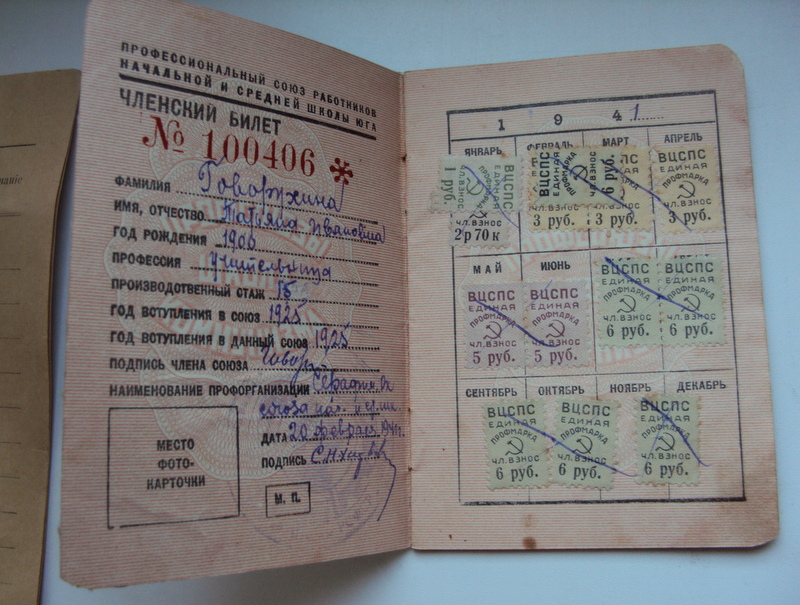 ПРОФЕССИОНАЛЬНЫЙ СОЮЗ РАБОТНИКОВ
НАЧАЛЬНОЙ И СРЕДНЕЙ ШКОЛЫ ЮГА
ЧЛЕНСКИЙ БИЛЕТ
№ 100406 *
ФАМИЛИЯ Говорухина
ИМЯ, ОТЧЕСТВО Татьяна Ивановна
ГОД РОЖДЕНИЯ 1906
ПРОФЕССИЯ учительница
ПРОИЗВОДСТВЕННЫЙ СТАЖ
ГОД ВСТУПЛЕНИЯ В СОЮЗ 1925
ГОД ВСТУПЛЕНИЯ В ДАННЫЙ СОЮЗ 1925
ПОДПИСЬ ЧЛЕНА СОЮЗА Говор
НАИМЕНОВАНИЕ ПРОФОРГАНИЗАЦИИ
союза
ДАТА 20 февраля
ПОДПИСЬ
МЕСТО
ФОТО-
КАРТОЧКИ
М. П.
1941
ЯНВАРЬ ФЕВРАЛЬ МАРТ АПРЕЛЬ
1 руб. ВЦСПС ЕДИНАЯ
ЧЛ. ВЗНОС
2 р 70 к
ВЦСПС ЕДИНАЯ ПРОФМАРКА 6 руб.
ЧЛ. ВЗНОС
3 руб.
ЧЛ. ВЗНОС
3 руб.
ВЦСПС
ЕДИНАЯ
ПРОФМАРКА
ЧЛ. ВЗНОС
3 руб.
МАЙ ИЮНЬ
ВЦСПС
ЕДИНАЯ
ПРОФМАРКА
ЧЛ. ВЗНОС
5 руб.
ВЦСПС
ЕДИНАЯ
ПРОФМАРКА
ЧЛ. ВЗНОС
5 руб.
ВЦСПС
ЕДИНАЯ
ПРОФМАРКА
ЧЛ. ВЗНОС
6 руб.
ВЦСПС
ЕДИНАЯ
ПРОФМАРКА
ЧЛ. ВЗНОС
6 руб.
СЕНТЯБРЬ ОКТЯБРЬ НОЯБРЬ ДЕКАБРЬ
ВЦСПС
ЕДИНАЯ
ПРОФМАРКА
ЧЛ. ВЗНОС
6 руб.
ВЦСПС
ЕДИНАЯ
ПРОФМАРКА
ЧЛ. ВЗНОС
6 руб.
ВЦСПС
ЕДИНАЯ
ПРОФМАРКА
ЧЛ. ВЗНОС
6 руб.